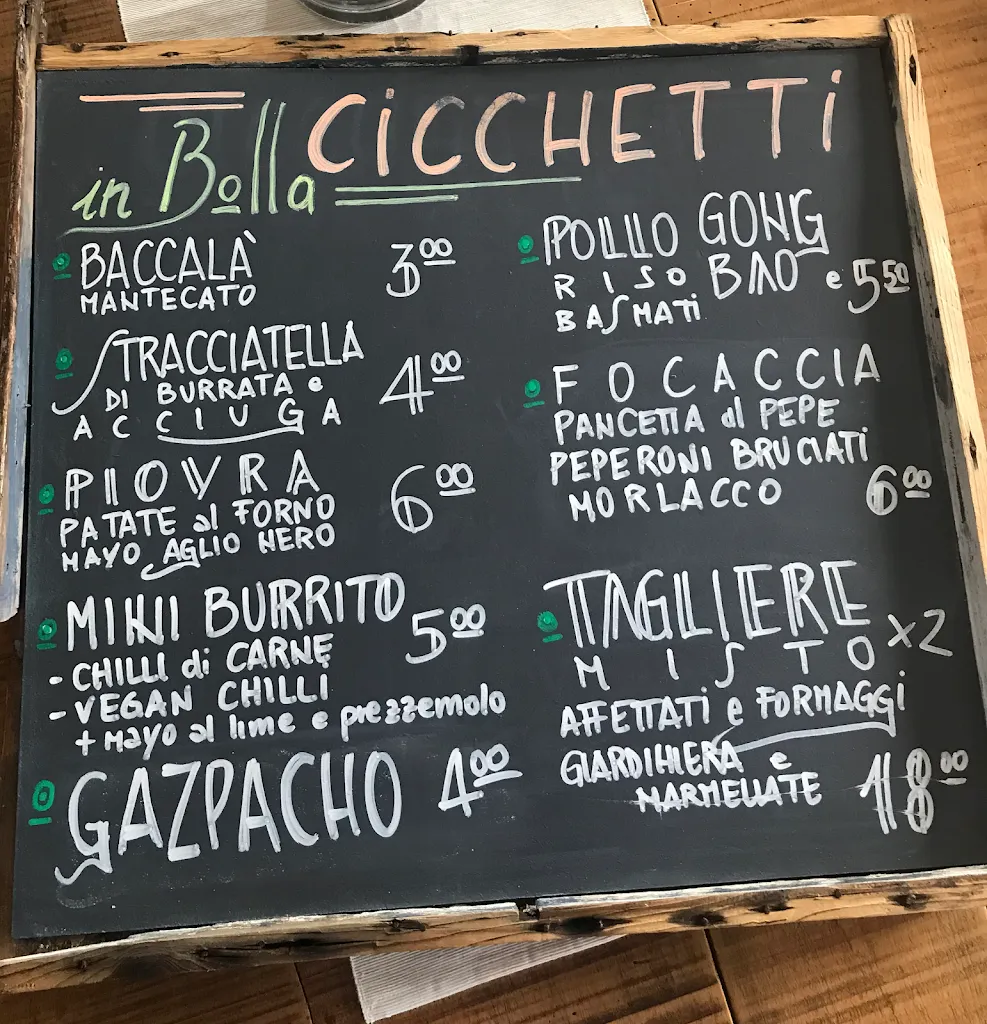 CiCCHETTi
in Bolla
BACCALÀ 3.00
MANTECATO
STRACCIATELLA
DI BURRATA e 4.00
ACCIUGA
PIOVRA
PATATE al FORNO 6.00
MAYO AGLIO NERO
MINI BURRITO
- CHILLI di CARNE 5.00
- VEGAN CHILLI
+ MAYO al lime e prezzemolo
GAZPACHO 4.00
POLLO GONG
RISO BAO e 5.50
BASMATi
FOCACCIA
PANCETTA al PEPE
PEPERONI BRUCIATI
MORLACCO 6.00
TAGLIERE
MISTO x2
AFFETTATi e FORMAGGi
GIARDINIERA e
MARMELLATE 18.00